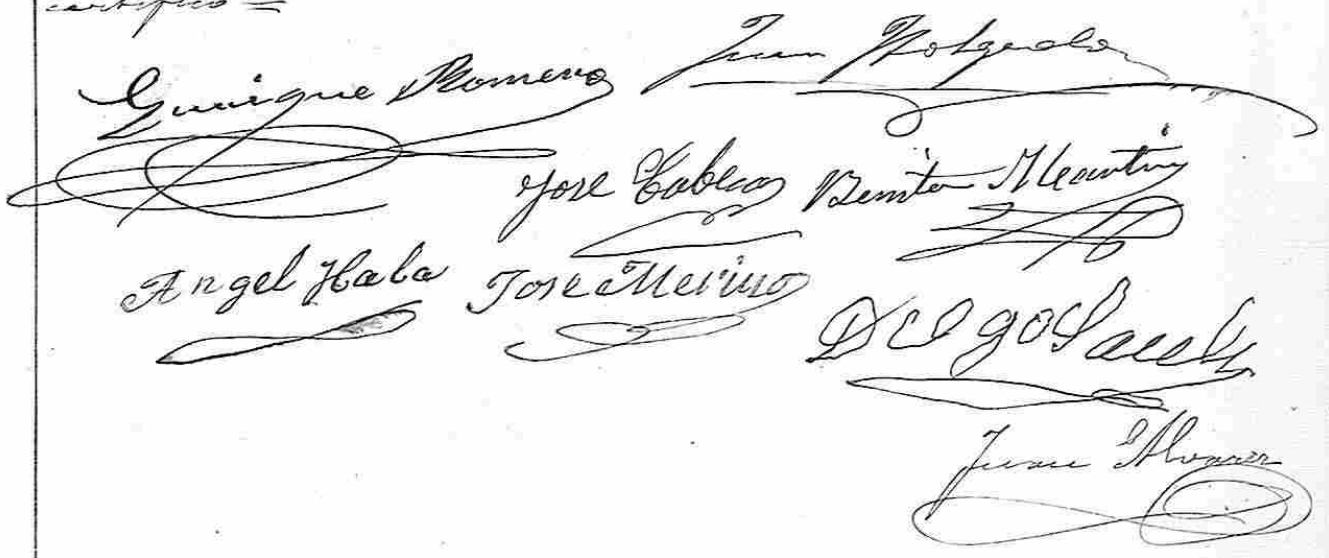 certifico =
Enrique Romero Juan Holgado
Jose Cabezas Benito Martin
Angel Haba Jose Merino
Diego
Juan Alvarez